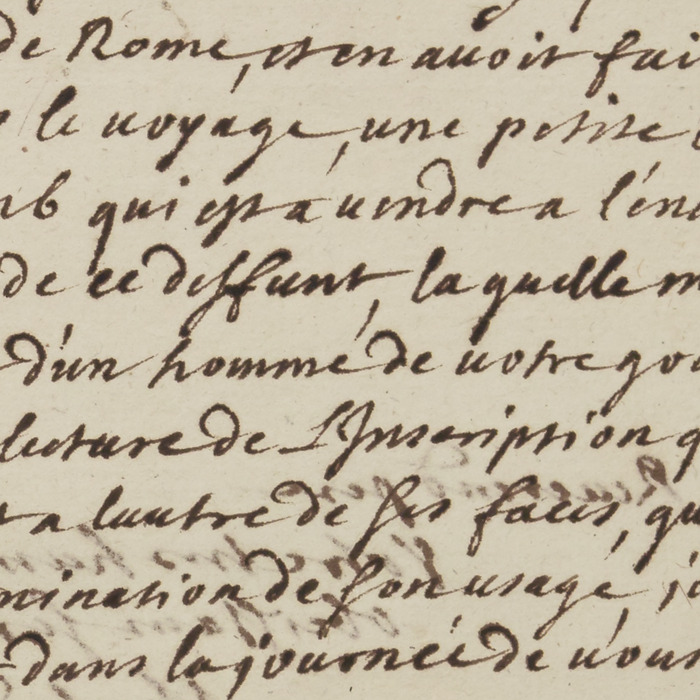 de Rome, et en auoit fai
le uoyage, une petite
qui est a uendre a l'en
de ce deffunt, laquelle m
d'un homme de uotre gou
lecture de L'Inscription q
a l'autre de ses faces, qu
mination de son usage, j
dans la journée de uous